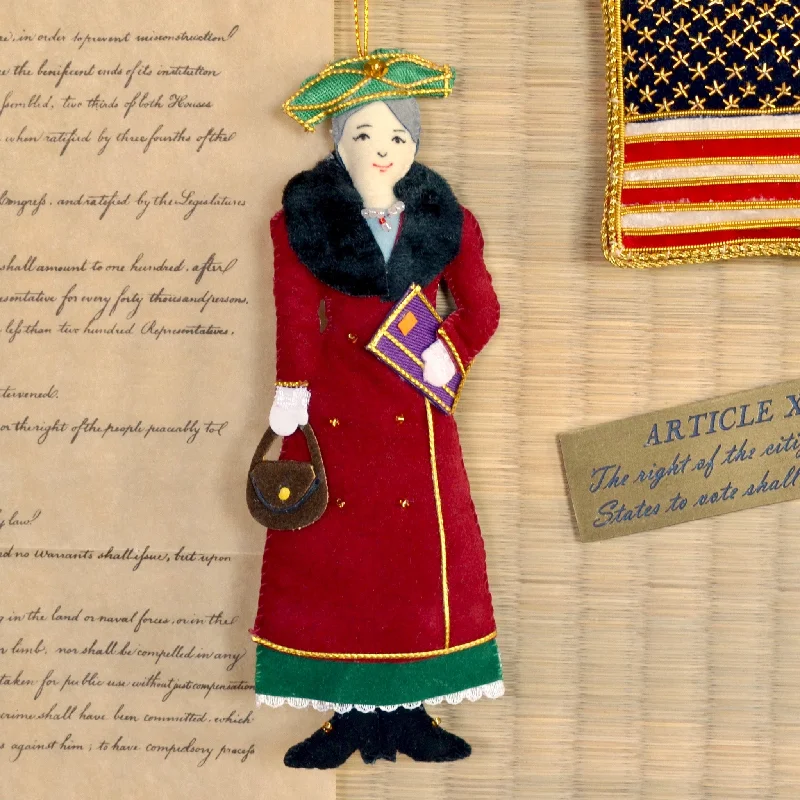 re, in order to prevent misconstruction
e the beneficent ends of its institution
sembled, two thirds of both Houses
, when ratified by three fourths of the
Congress, and ratified by the Legislatures
shall amount to one hundred, after
esentative for every forty thousand persons,
less than two hundred Representatives,
tervened.
or the right of the people peaceably to
y law.
nd no Warrants shall issue, but upon
g in the land or naval forces, or in the
r limb, nor shall be compelled in any
taken for public use without just compensation
crime shall have been committed, which
against him; to have compulsory process
ARTICLE X
The right of the citiz
States to vote shall